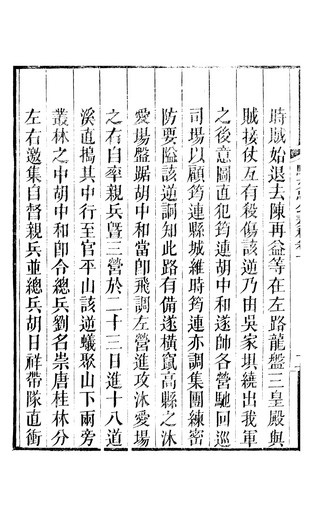 時賊始退去陳再益等在左路龍盤三皇殿與
賊接仗互有殺傷該逆乃由吳家壩繞出我軍
之後意圖直犯筠連胡中和遂帥各營馳回巡
司場以顧筠連縣城維時筠連亦調集團練密
防要隘該逆詗知此路有備遂橫竄高縣之沐
愛場盤踞胡中和當卽飛調左營進攻沐愛場
之右自率親兵曁三營於二十三日進十八道
溪直搗其中行至官平山該逆蟻聚山下兩旁
叢林之中胡中和卽令總兵劉名崇唐桂林分
左右邀集自督親兵並總兵胡日祥帶隊直衝